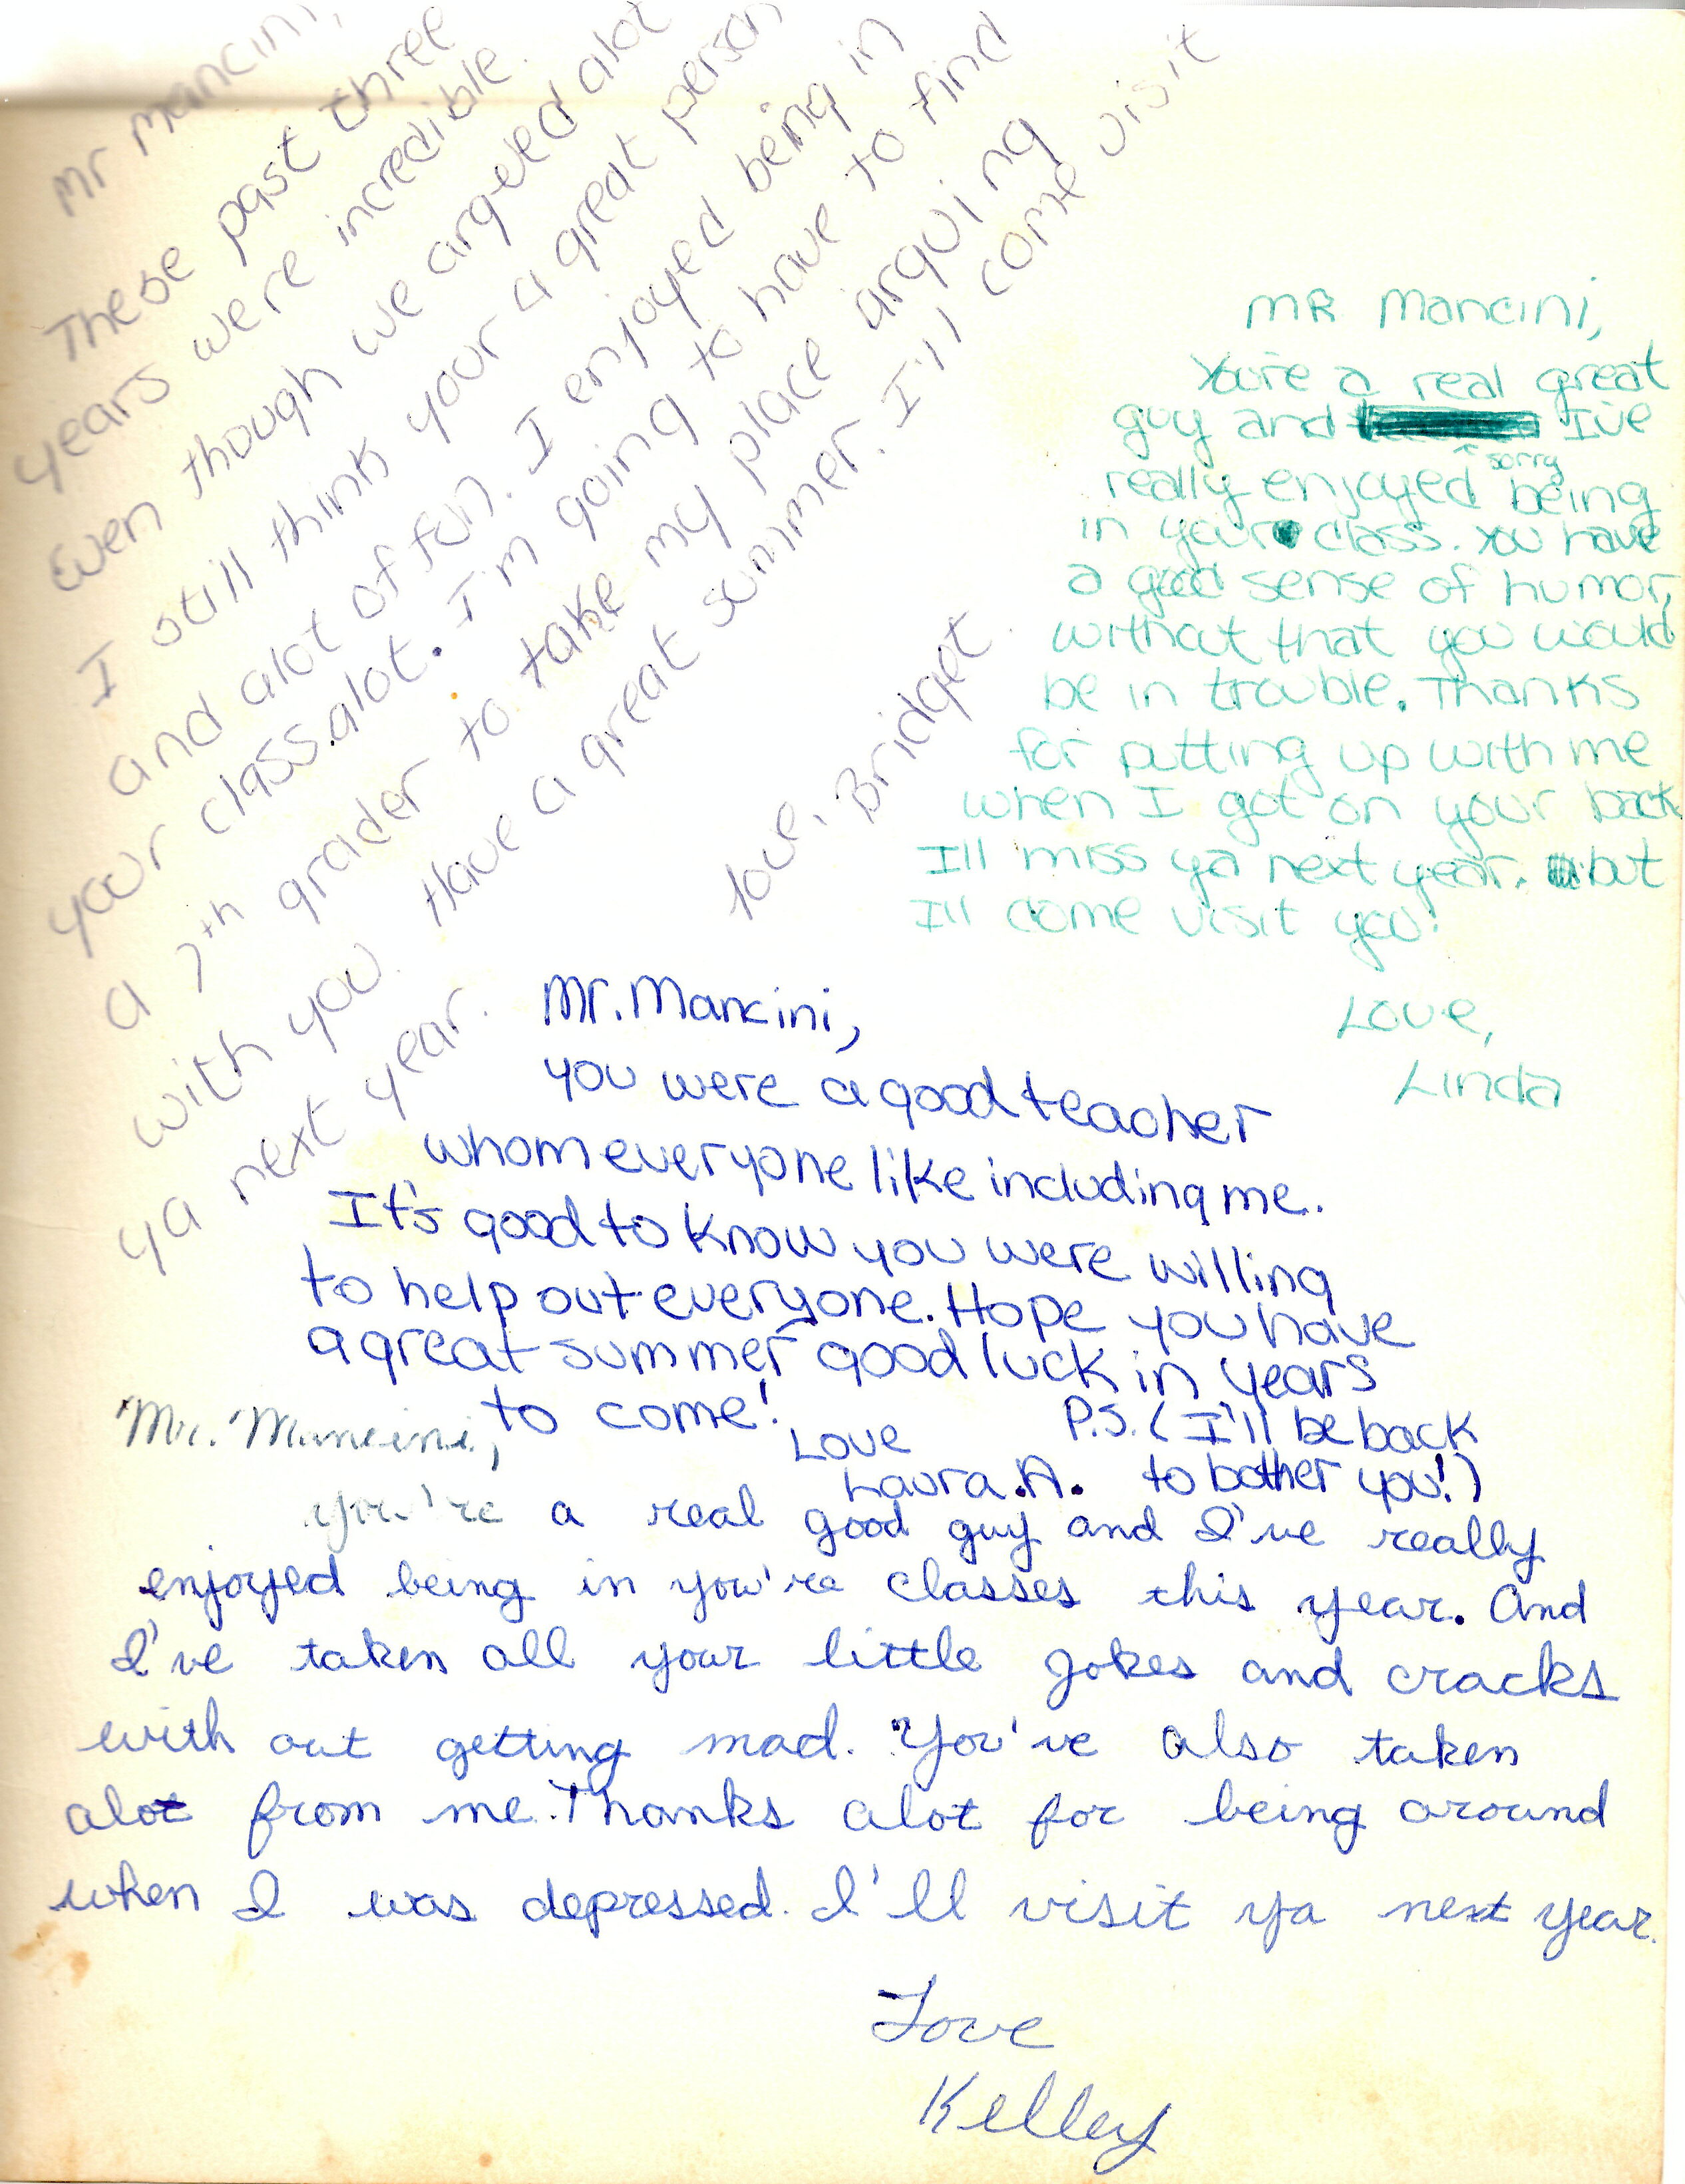 Mr Mancini,
These past three
years were incredible.
Even though we argued alot
I still think your a great person
and alot of fun. I enjoyed being in
your class.alot. I'm going to have to find
a 7th grader to take my place arguing
with you. Have a great summer. I'll come visit
ya next year.
love, Bridget.
MR Mancini,
You're a real great
guy and I've
sorry
really enjoyed being
in your class. You have
a good sense of humor,
without that you would
be in trouble. Thanks
for putting up with me
when I got on your back
I'll miss ya next year. but
I'll come visit you.
Love,
Linda
Mr. Mancini,
you were a good teacher
whom everyone like including me.
It's good to know you were willing
to help out everyone. Hope you have
a great summer good luck in years
to come!
Love
Laura.A.
P.S. (I'll be back
to bother you!)
Mr. Mancini,
You're a real good guy and I've really
enjoyed being in you're classes this year. And
I've taken all your little jokes and cracks
with out getting mad. You've also taken
alot from me. Thanks alot for being around
when I was depressed. I'll visit ya next year.
Love
Kelley